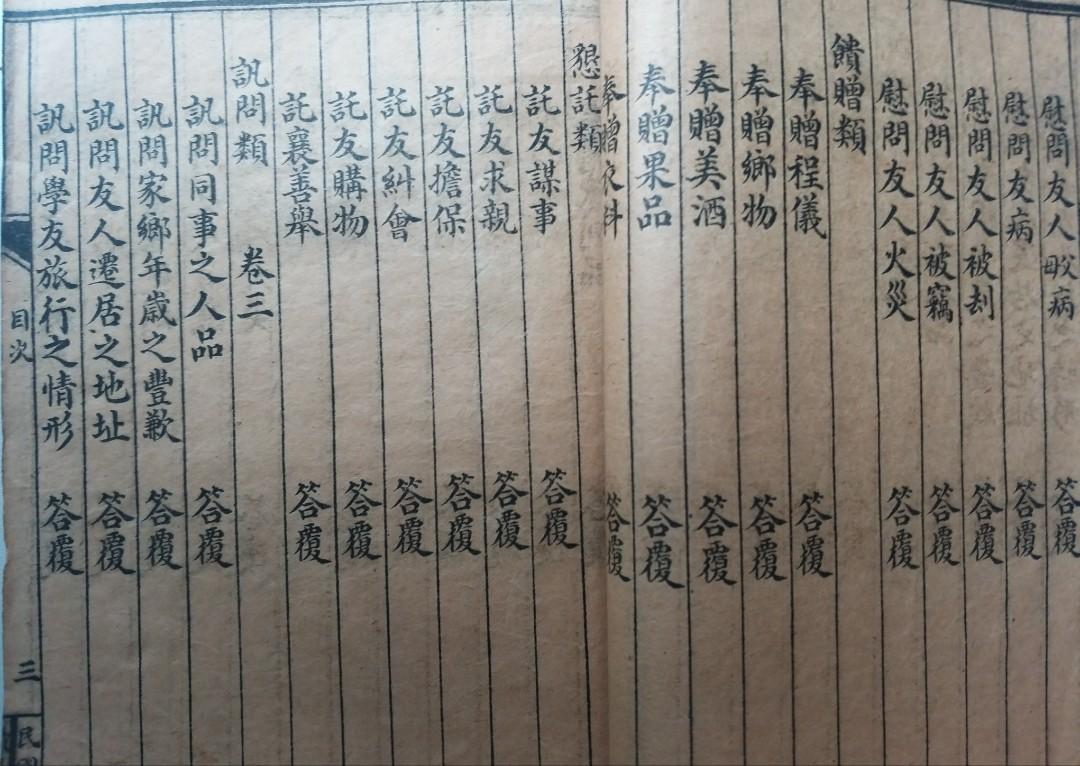 慰問友人病 答覆
慰問友病 答覆
慰問友人被刦 答覆
慰問友人被竊 答覆
慰問友人火災 答覆
饋贈類
奉贈程儀 答覆
奉贈鄉物 答覆
奉贈美酒 答覆
奉贈果品 答覆
奉贈衣料 答覆
懇託類
託友謀事 答覆
託友求親 答覆
託友擔保 答覆
託友糾會 答覆
託友購物 答覆
託襄善舉 答覆
訊問類 卷三
訊問同事之人品 答覆
訊問家鄉年歲之豐歉 答覆
訊問友人遷居之地址 答覆
訊問學友旅行之情形 答覆
目次 三 民